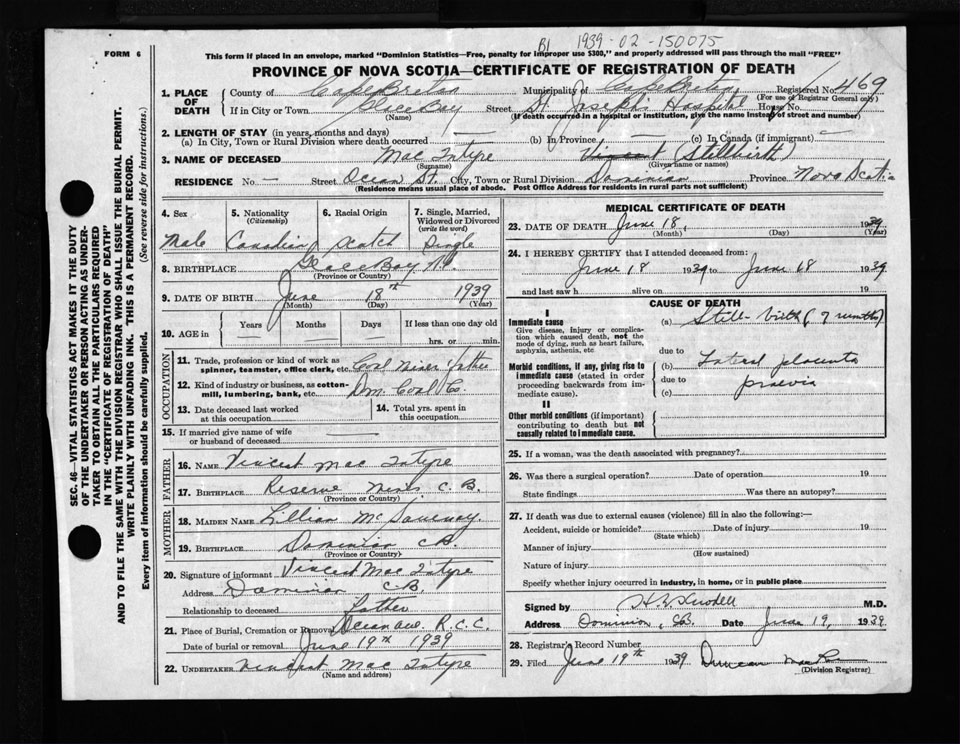 B1 1939-02-150075
FORM 6
This form if placed in an envelope, marked "Dominion Statistics—Free, penalty for improper use $300," and properly addressed will pass through the mail "FREE"
PROVINCE OF NOVA SCOTIA—CERTIFICATE OF REGISTRATION OF DEATH
SEC. 46—VITAL STATISTICS ACT MAKES IT THE DUTY
OF THE UNDERTAKER OR PERSON ACTING AS UNDER-
TAKER TO OBTAIN ALL THE PARTICULARS REQUIRED
IN THE "CERTIFICATE OF REGISTRATION OF DEATH"
AND TO FILE THE SAME WITH THE DIVISION REGISTRAR WHO SHALL ISSUE THE BURIAL PERMIT.
WRITE PLAINLY WITH UNFADING INK. THIS IS A PERMANENT RECORD.
Every item of information should be carefully supplied. (See reverse side for instructions.)
1. PLACE OF DEATH County of Cape Breton Municipality of Cape Breton Registered No. 469
(For use of Registrar General only)
If in City or Town Glace Bay Street St. Joseph's Hospital House No.
(Name) (If death occurred in a hospital or institution, give the name instead of street and number)
2. LENGTH OF STAY (in years, months and days)
(a) In City, Town or Rural Division where death occurred — (b) In Province — (c) In Canada (if immigrant) —
3. NAME OF DECEASED Mac Intyre Vincent (Stillbirth)
(Surname) (Given name or names)
RESIDENCE No. — Street Ocean St. City, Town or Rural Division Dominion Province Nova Scotia
(Residence means usual place of abode. Post Office Address for residents in rural parts not sufficient)
4. Sex Male
5. Nationality (Citizenship) Canadian
6. Racial Origin Scotch
7. Single, Married, Widowed or Divorced (write the word) Single
8. BIRTHPLACE Glace Bay N.S.
(Province or Country)
9. DATE OF BIRTH June 18th 1939
(Month) (Day) (Year)
10. AGE in Years Months Days If less than one day old
hrs. or min.
OCCUPATION
11. Trade, profession or kind of work as
spinner, teamster, office clerk, etc. Coal Miner father
12. Kind of industry or business, as cotton-
mill, lumbering, bank, etc. Dom. Coal Co.
13. Date deceased last worked
at this occupation
14. Total yrs. spent in
this occupation
15. If married give name of wife
or husband of deceased —
FATHER
16. NAME Vincent Mac Intyre
17. BIRTHPLACE Reserve Mines C. B.
(Province or Country)
MOTHER
18. MAIDEN NAME Lillian
19. BIRTHPLACE Dominion C.B.
(Province or Country)
20. Signature of informant Vincent Mac Intyre
Address Dominion C.B.
Relationship to deceased father
21. Place of Burial, Cremation or Removal Ocean Ave. R.C.C.
Date of burial or removal June 19th 1939
22. UNDERTAKER Vincent Mac Intyre
(Name and address)
MEDICAL CERTIFICATE OF DEATH
23. DATE OF DEATH June 18, 1939
(Month) (Day) (Year)
24. I HEREBY CERTIFY that I attended deceased from:
June 18 1939 to June 18 1939
and last saw h alive on 19
CAUSE OF DEATH
I
Immediate cause
Give disease, injury or complica-
tion which caused death, not the
mode of dying, such as heart failure,
asphyxia, asthenia, etc
(a) Still-birth (7 months)
due to
Morbid conditions, if any, giving rise to
immediate cause (stated in order
proceeding backwards from im-
mediate cause).
(b) Lateral placenta
due to
(c) praevia
II
Other morbid conditions (if important)
contributing to death but not
causally related to immediate cause.
25. If a woman, was the death associated with pregnancy?
26. Was there a surgical operation? Date of operation 19
State findings Was there an autopsy?
27. If death was due to external causes (violence) fill in also the following:—
Accident, suicide or homicide? Date of injury 19
(State which)
Manner of injury
(How sustained)
Nature of injury
Specify whether injury occurred in industry, in home, or in public place
Signed by M.D.
Address Dominion, C.B. Date June 19, 1939
28. Registrar's Record Number
29. Filed June 19th 1939 Duncan
(Division Registrar)